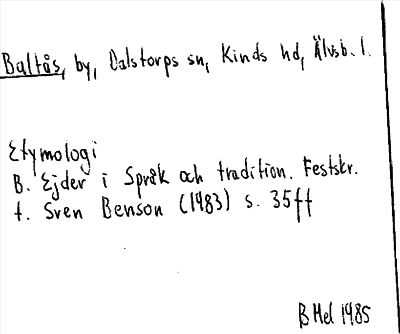 Baltås, by, Dalstorps sn, Kinds hd, Älvsb. l.
Etymologi
B. Ejder i Språk och tradition. Festskr.
t. Sven Benson (1983) s. 35ff
B Hel 1985